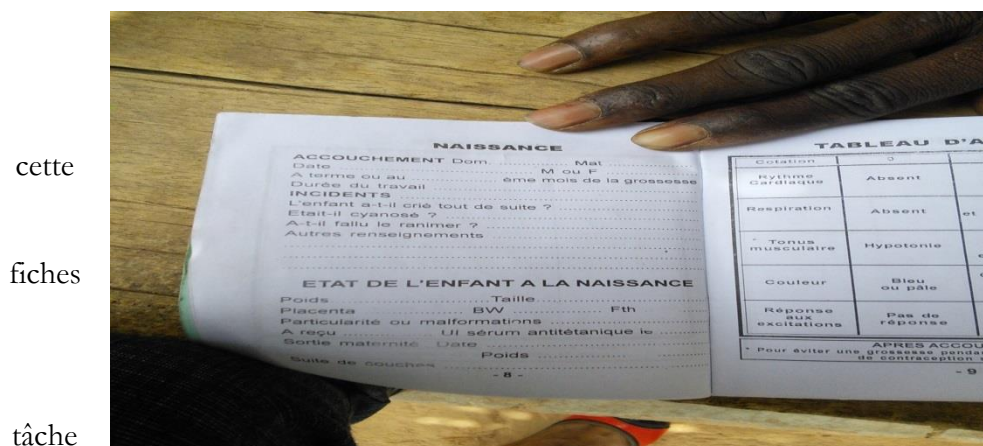 cette
fiches
tâche
NAISSANCE
ACCOUCHEMENT Dom. Mat
Date M ou F
A terme ou au ème mois de la grossesse
Durée du travail
INCIDENTS
L'enfant a-t-il crié tout de suite ?
Etait-il cyanosé ?
A-t-il fallu le ranimer ?
Autres renseignements
ETAT DE L'ENFANT A LA NAISSANCE
Poids Taille
Placenta BW Fth
Particularité ou malformations
A reçu UI sérum antitétanique le
Sortie maternité Date
Poids
Suite de couches
- 8 -
TABLEAU D'A
Cotation
Rythme Cardiaque Absent
Respiration Absent et
* Tonus musculaire Hypotonie
Couleur Bleu ou pâle
Réponse aux excitations Pas de réponse
APRES ACCOU
* Pour éviter une grossesse penda
de contraception
- 9